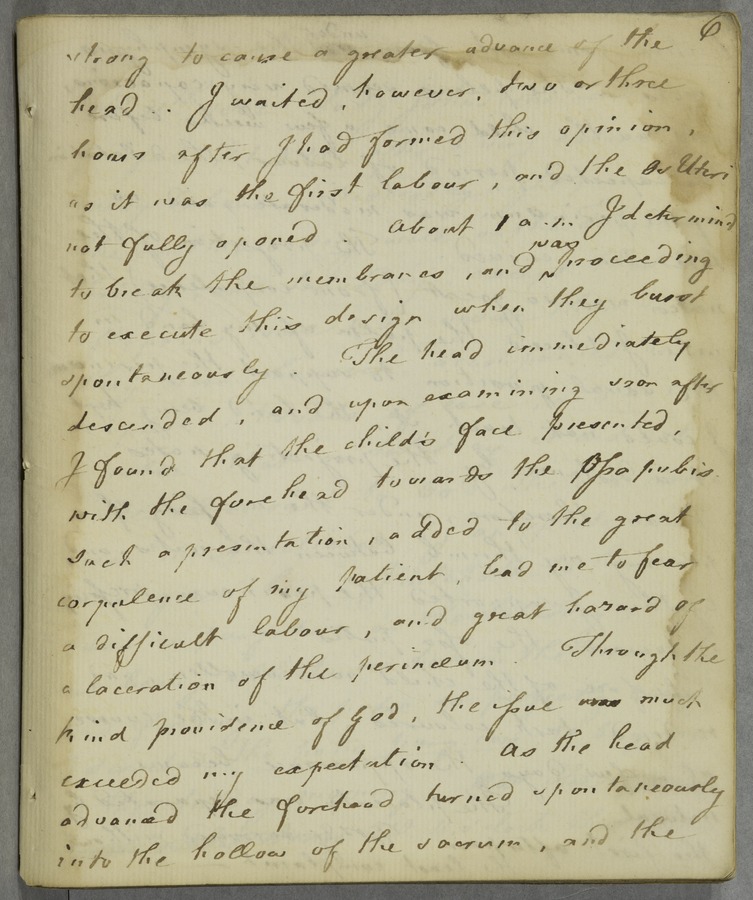 6
strong to cause a greater advance of the
head. I waited, however, two or three
hours after I had formed this opinion,
as it was the first labour, and the Os Uteri
not fully opened. About 1 a.m. I determind
was
to break the membranes, and ^ proceeding
to execute this design when they burst
spontaneously. The head immediately
descended, and upon examining soon after
I found that the child's face presented,
with the forehead towards the Ossa pubis.
Such a presentation, added to the great
corpulence of my patient, lead me to fear
a difficult labour, and great hazard of
a laceration of the perineum. Through the
kind providence of God, the issue much
exceeded my expectation. As the head
advanced the forehead turned spontaneously
into the hollow of the sacrum, and the